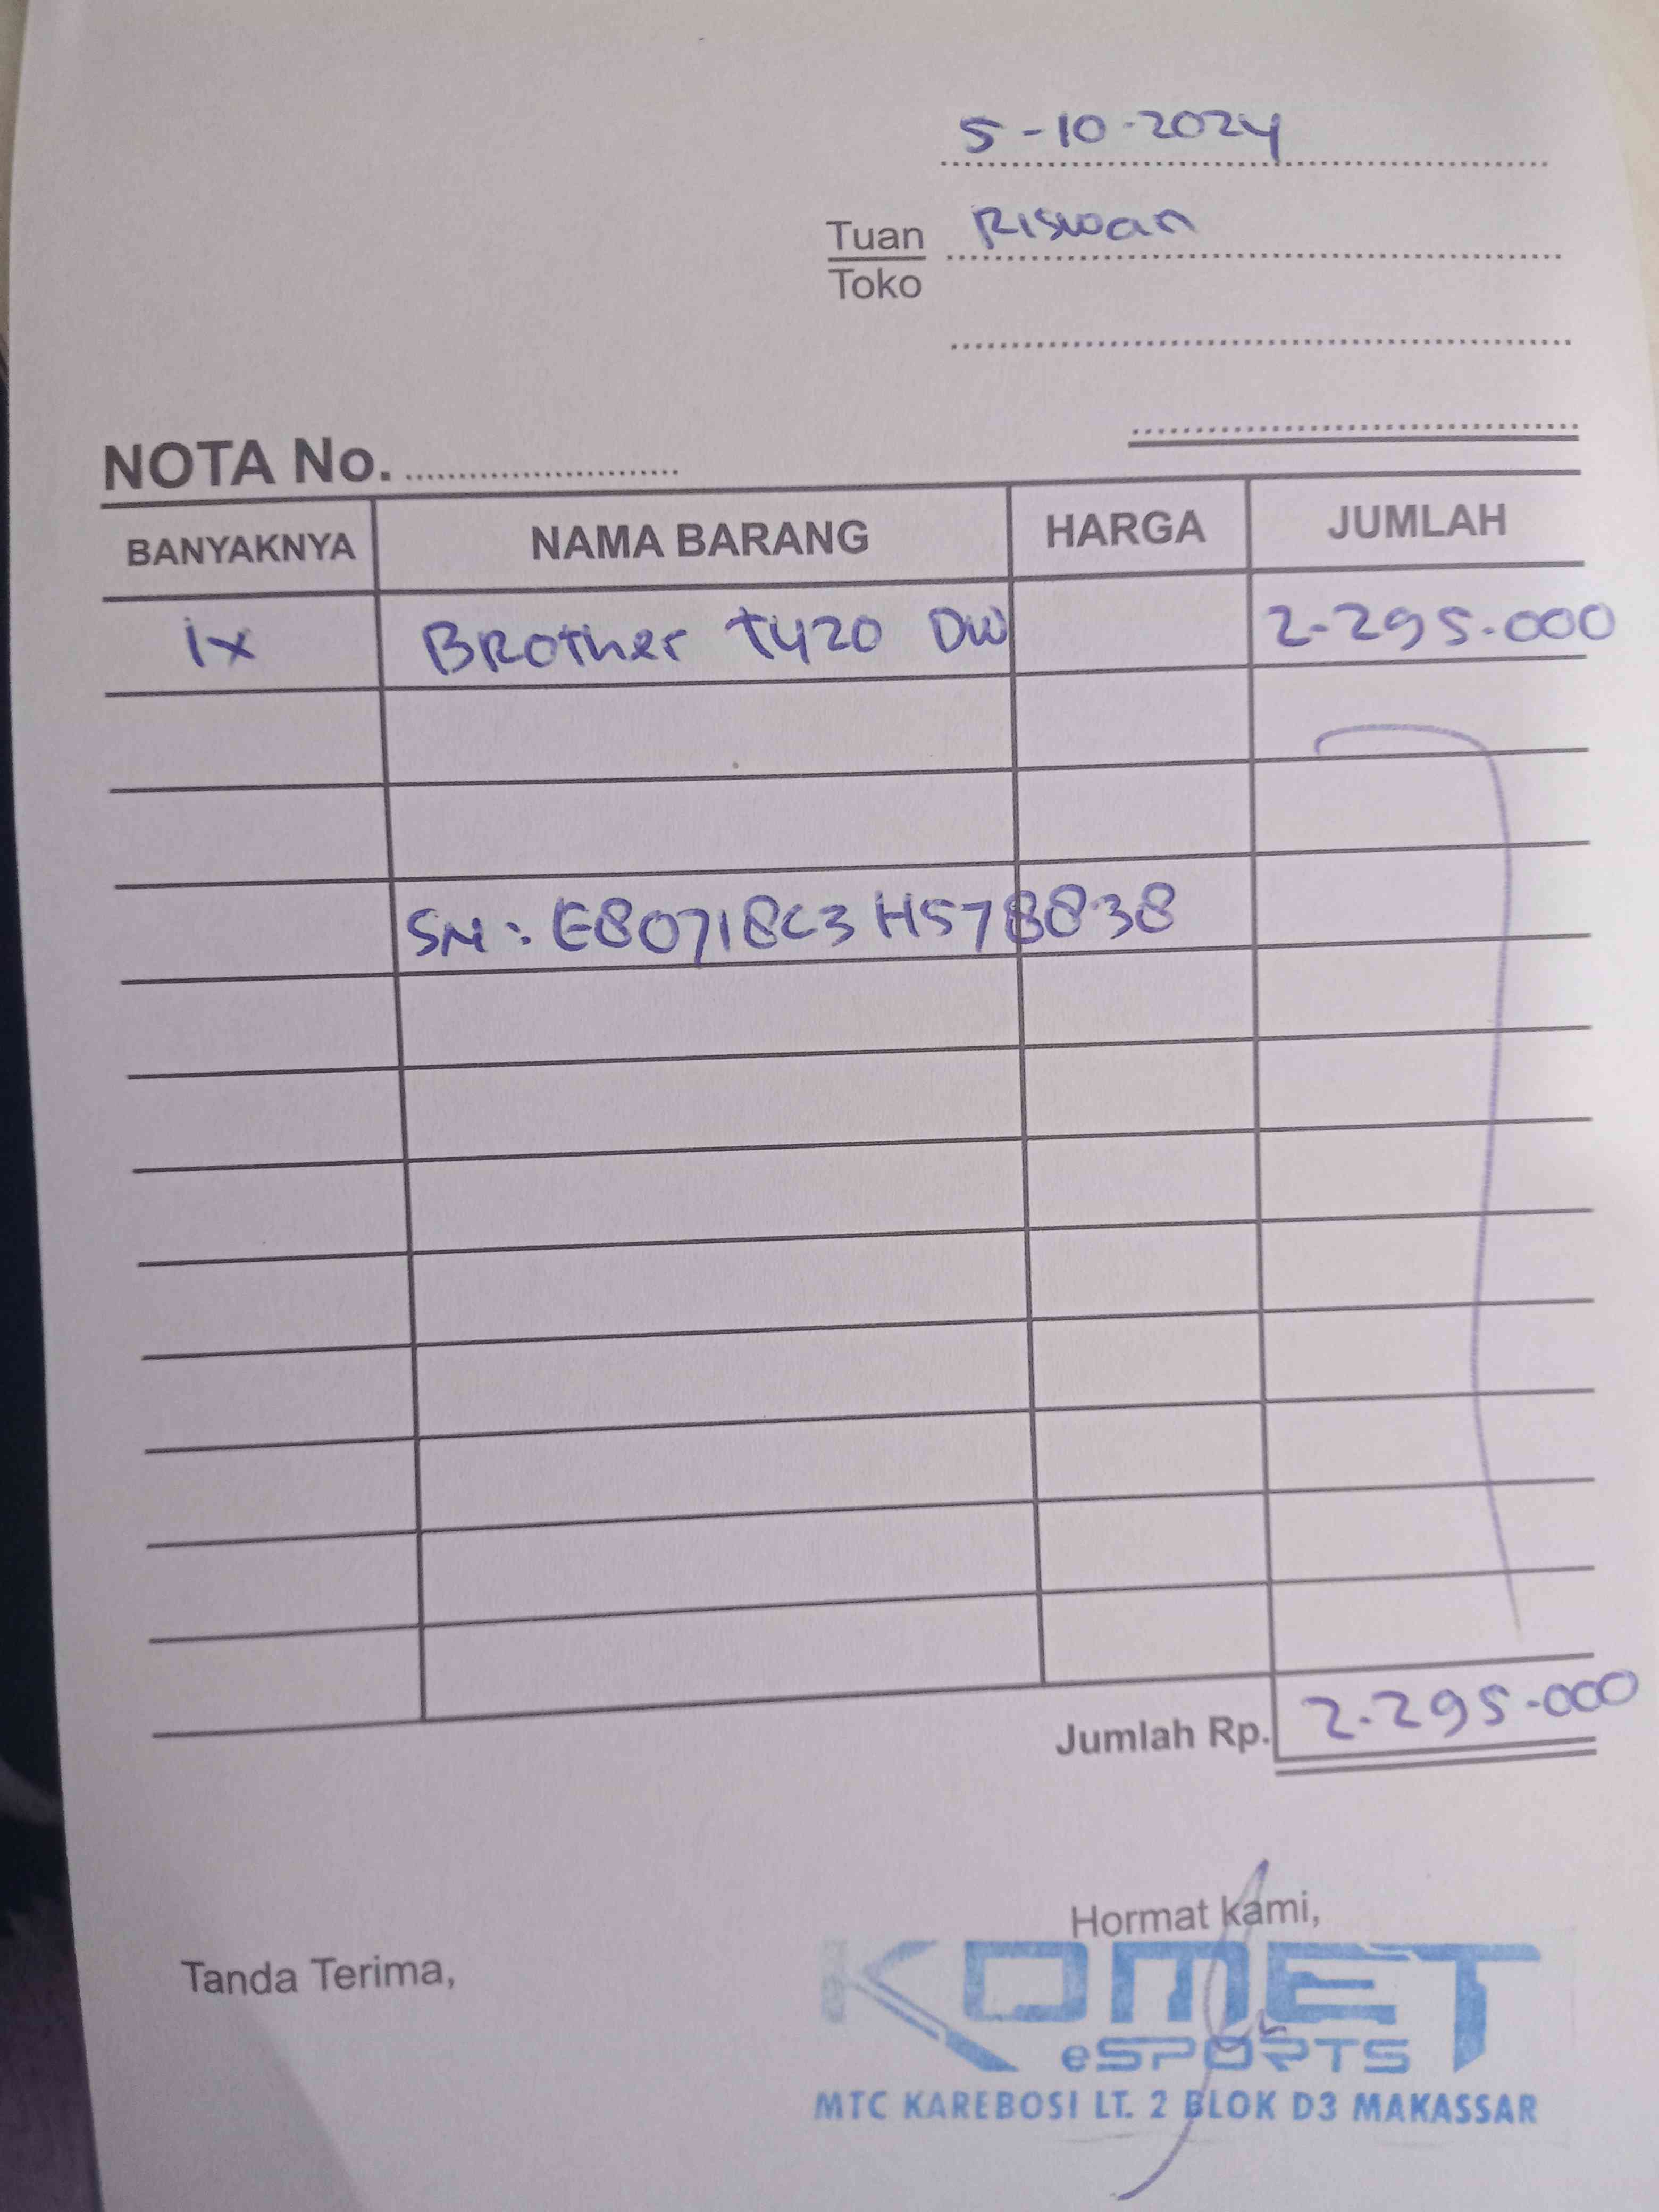 5-10-2024
Tuan Riswan
Toko
NOTA No.
BANYAKNYA NAMA BARANG HARGA JUMLAH
1x Brother T420 DW 2.295.000
SN: E80718C3H578838
Jumlah Rp. 2.295.000
Hormat kami,
Tanda Terima,
KOMET
eSPORTS
MTC KAREBOSI LT. 2 BLOK D3 MAKASSAR